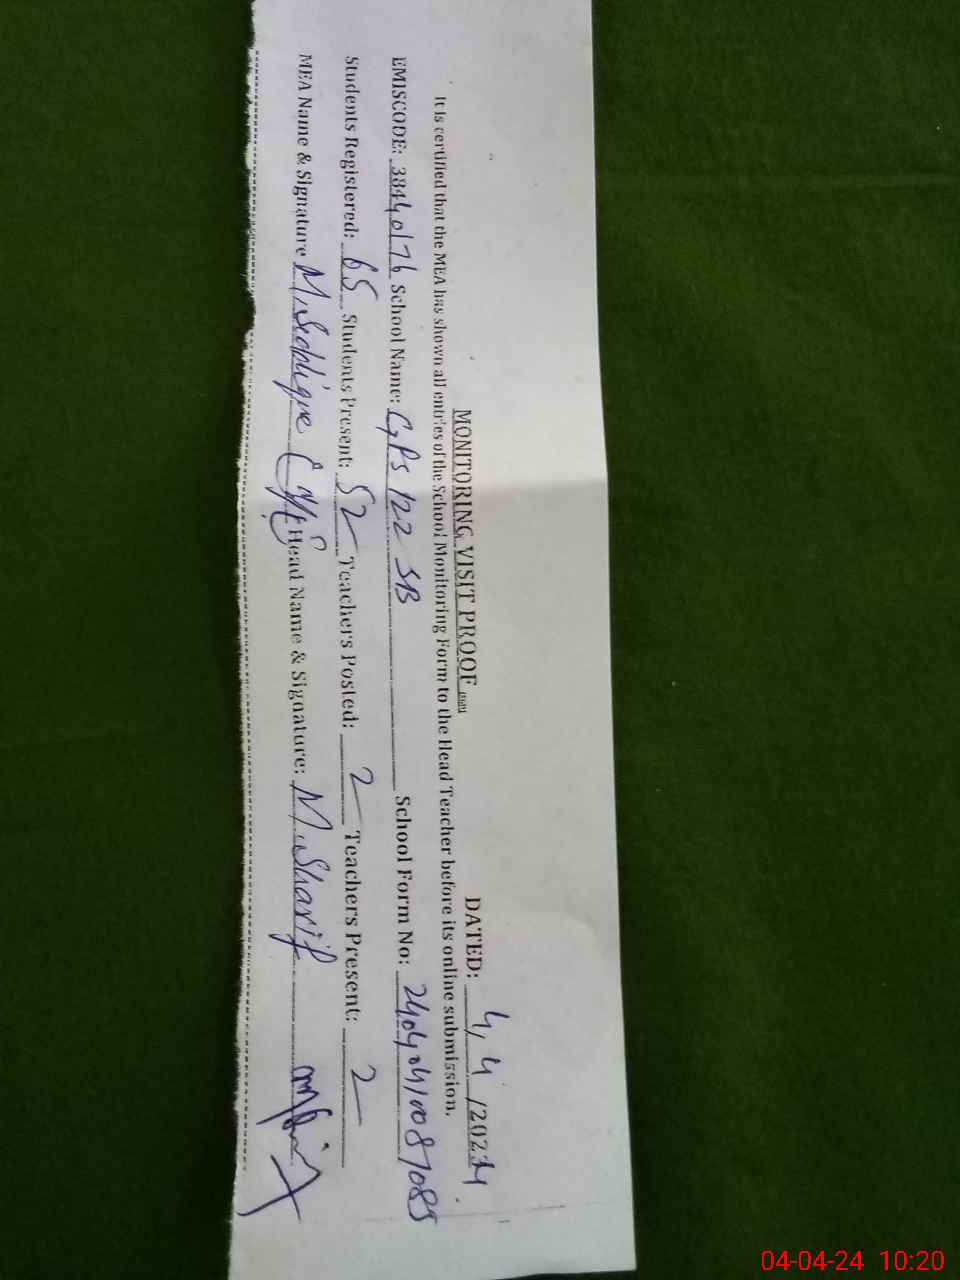 MONITORING VISIT PROOF DATED: 4, 4 /2024
It is certified that the MEA has shown all entries of the School Monitoring Form to the Head Teacher before its online submission.
EMISCODE: 38440176 School Name: GPS 122 SB School Form No:
Students Registered: 65 Students Present: 52 Teachers Posted: 2 Teachers Present: 2
MEA Name & Signature M. Seddique Head Name & Signature: M. Sharif
04-04-24 10:20